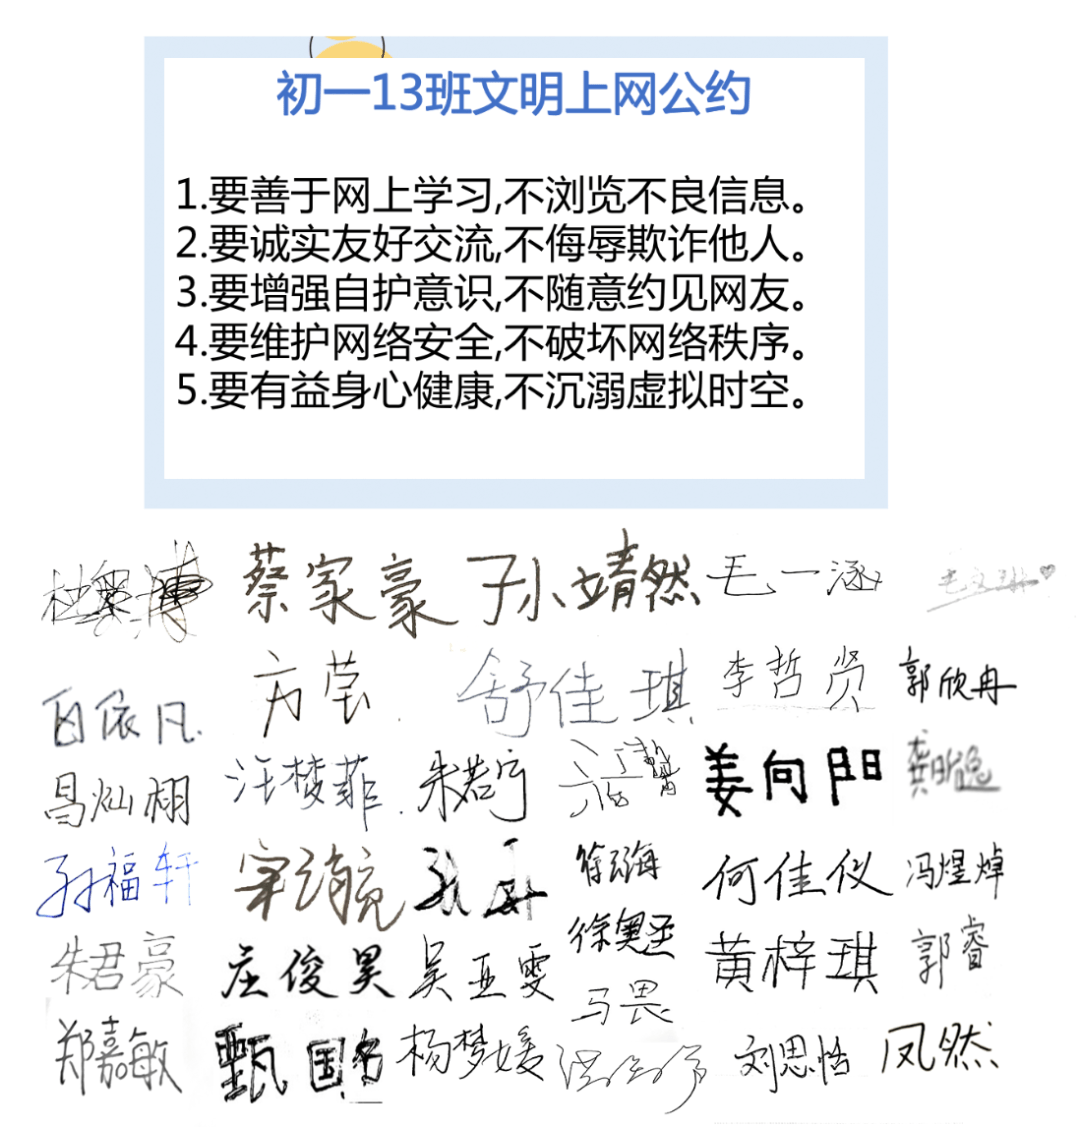 初一13班文明上网公约
1.要善于网上学习,不浏览不良信息。
2.要诚实友好交流,不侮辱欺诈他人。
3.要增强自护意识,不随意约见网友。
4.要维护网络安全,不破坏网络秩序。
5.要有益身心健康,不沉溺虚拟时空。
蔡家豪 孙靖然 毛一涵
白依凡 方莹 舒佳琪 李哲贤 郭欣冉
昌灿栩 汪梦菲 朱若宁 姜向阳
孙福轩 何佳仪 冯煜焯
朱君豪 庄俊昊 吴亚雯 徐奥丞 黄梓琪 郭睿
郑嘉敏 甄国名 杨梦媛 马思 刘思恬 凤然